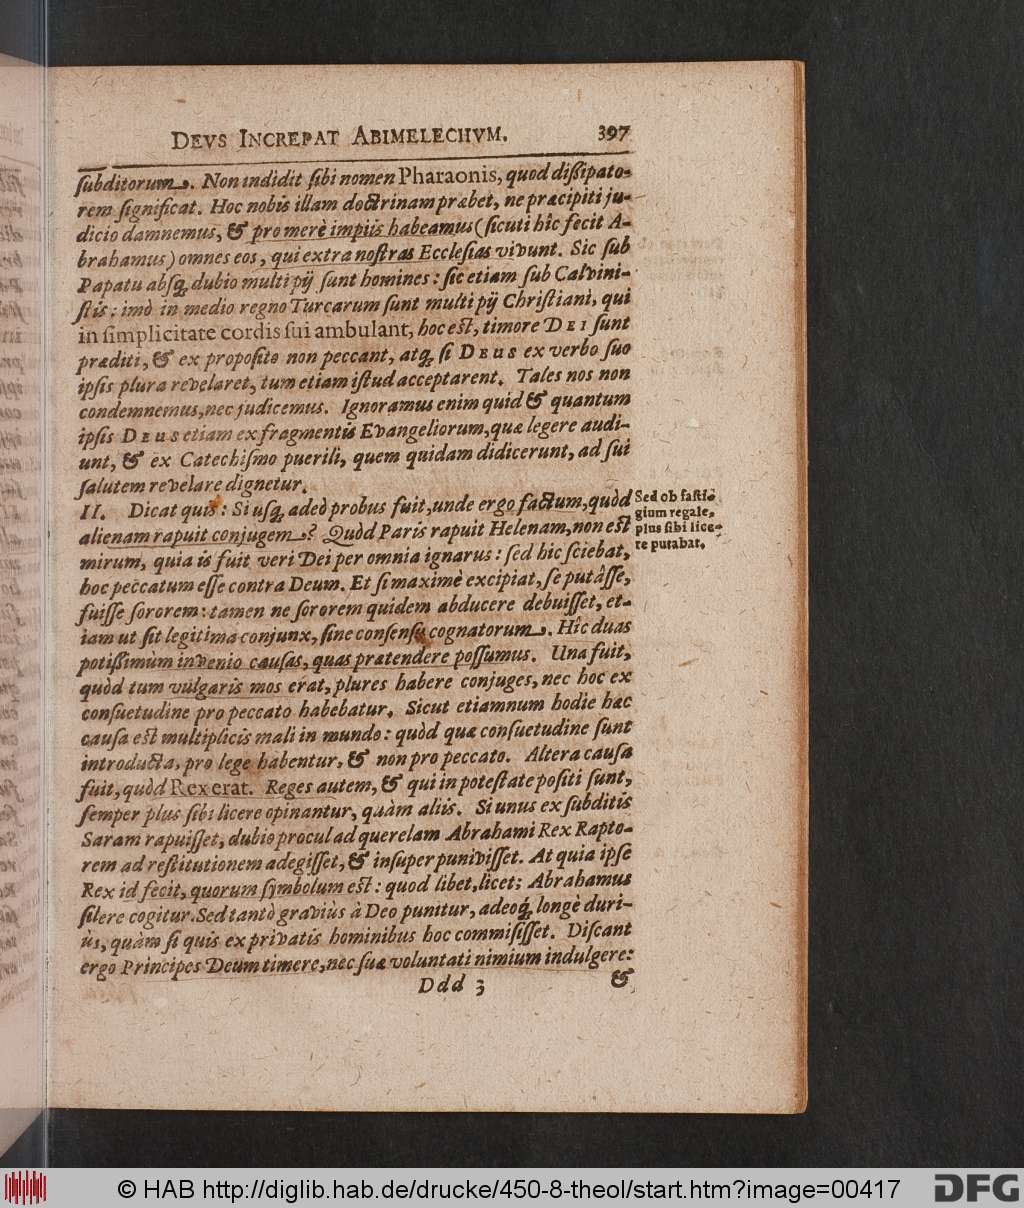 DEVS INCREPAT ABIMELECHVM. 397
ſubditorum. Non indidit ſibi nomen Pharaonis, quod dißipato-
rem ſignificat. Hoc nobis illam doctrinam præbet, ne præcipiti ju-
dicio damnemus, & pro merè impiis habeamus (ſicuti hîc fecit A-
brahamus) omnes eos, qui extra noſtras Eccleſias vivunt. Sic ſub
Papatu abſq; dubio multi pij ſunt homines: ſic etiam ſub Calvini-
ſtis: imò in medio regno Turcarum ſunt multi pij Chriſtiani, qui
in ſimplicitate cordis ſui ambulant, hoc eſt, timore DEI ſunt
præditi, & ex propoſito non peccant, atq; ſi DEUS ex verbo ſuo
ipſis plura revelaret, tum etiam iſtud acceptarent. Tales nos non
condemnemus, nec judicemus. Ignoramus enim quid & quantum
ipſis DEUS etiam ex fragmentis Evangeliorum, quæ legere audi-
unt, & ex Catechiſmo puerili, quem quidam didicerunt, ad ſui
ſalutem revelare dignetur.
II. Dicat quis: Si uſq; adeò probus fuit, unde ergo factum, quòd
alienam rapuit conjugem? Quòd Paris rapuit Helenam, non eſt
mirum, quia is fuit veri Dei per omnia ignarus: ſed hic ſciebat,
hoc peccatum eſſe contra Deum. Et ſi maximè excipiat, ſe putâſſe,
fuiſſe ſororem: tamen ne ſororem quidem abducere debuiſſet, et-
iam ut ſit legitima conjunx, ſine conſenſu cognatorum. Hîc duas
potißimùm invenio cauſas, quas prætendere poſſumus. Una fuit,
quòd tum vulgaris mos erat, plures habere conjuges, nec hoc ex
conſuetudine pro peccato habebatur. Sicut etiamnum hodie hæc
cauſa eſt multiplicis mali in mundo: quòd quæ conſuetudine ſunt
introducta, pro lege habentur, & non pro peccato. Altera cauſa
fuit, quòd Rex erat. Reges autem, & qui in poteſtate poſiti ſunt,
ſemper plus ſibi licere opinantur, quàm aliis. Si unus ex ſubditis
Saram rapuiſſet, dubio procul ad querelam Abrahami Rex Rapto-
rem ad reſtitutionem adegiſſet, & inſuper puniviſſet. At quia ipſe
Rex id fecit, quorum ſymbolum eſt: quod libet, licet; Abrahamus
ſilere cogitur. Sed tantò graviùs à Deo punitur, adeoq́; longè duri-
ùs, quàm ſi quis ex privatis hominibus hoc commiſiſſet. Diſcant
ergo Principes Deum timere, nec ſuæ voluntati nimium indulgere:
Ddd 3 &
Sed ob faſti-
gium regale,
plus ſibi lice-
re putabat.
© HAB http://diglib.hab.de/drucke/450-8-theol/start.htm?image=00417
DFG